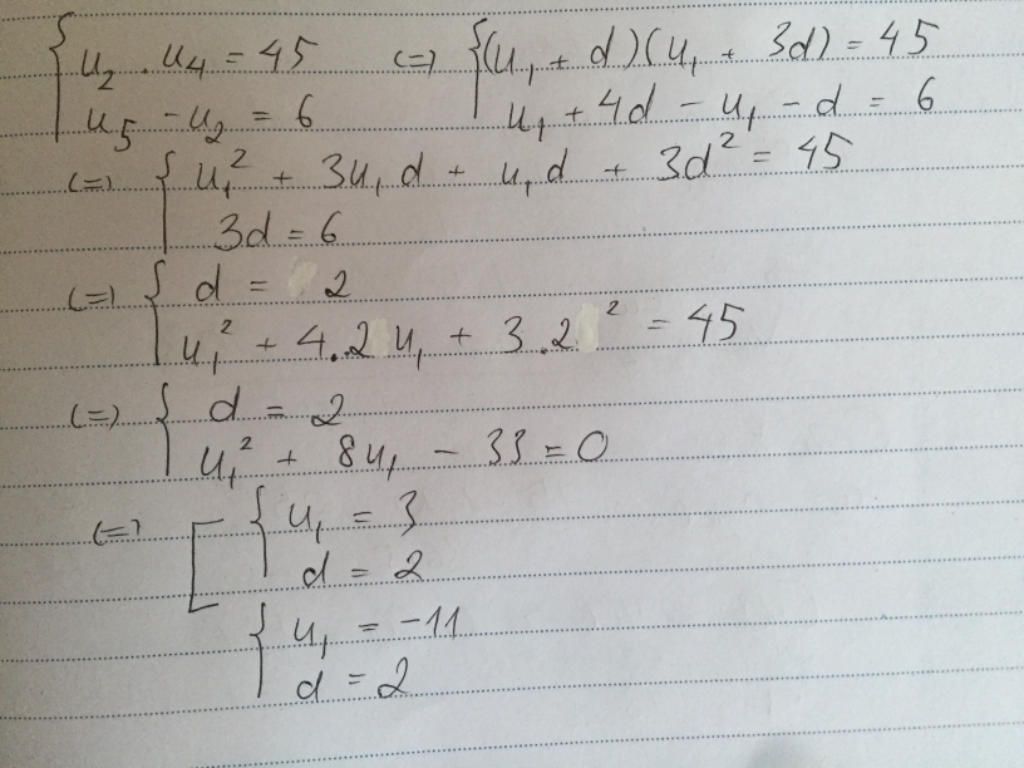 { u₂ . u₄ = 45 (=) { (u₁ + d)(u₁ + 3d) = 45
u₅ - u₂ = 6 u₁ + 4d - u₁ - d = 6
(=) { u₁² + 3u₁d + u₁d + 3d² = 45
3d = 6
(=) { d = 2
u₁² + 4.2u₁ + 3.2² = 45
(=) { d = 2
u₁² + 8u₁ - 33 = 0
(=) [ { u₁ = 3
d = 2
{ u₁ = -11
d = 2